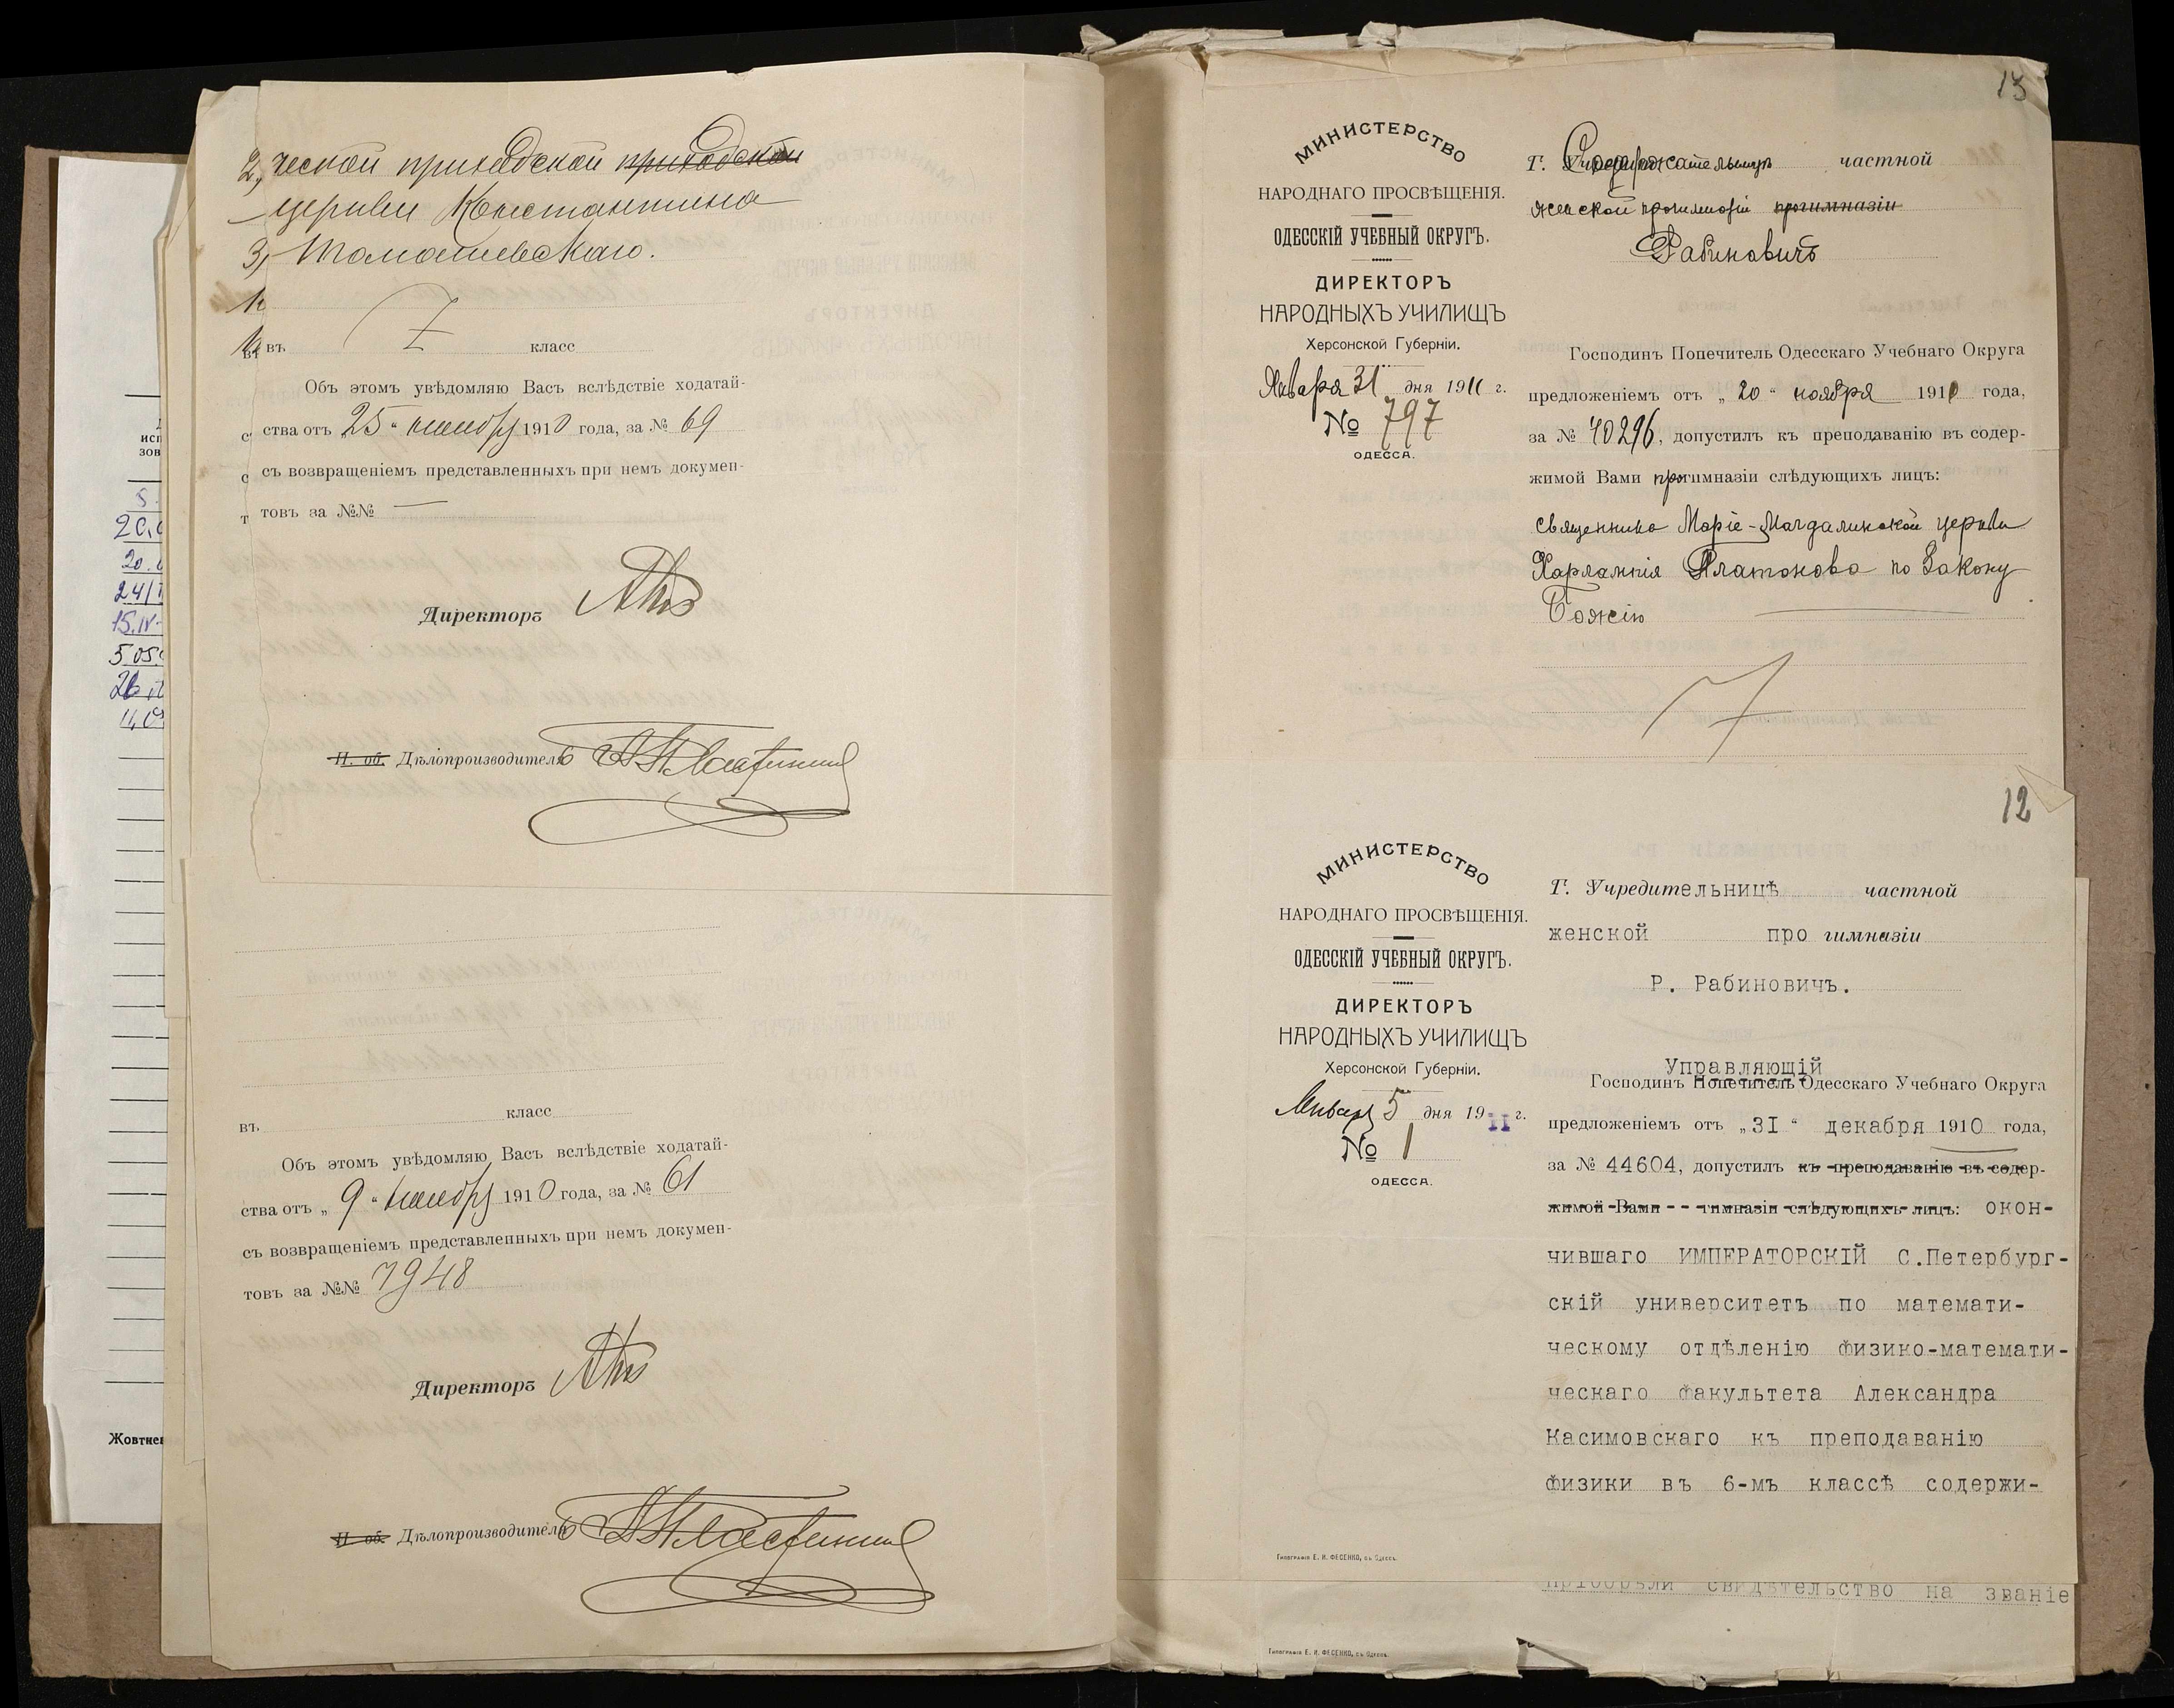 2, ческой приходской приходской
церкви Константина
3, Томашевскаго.
въ класс
Объ этомъ увѣдомляю Васъ вслѣдствіе ходатай-
ства отъ „25“ ноября 1910 года, за № 69
съ возвращеніемъ представленныхъ при немъ докумен-
товъ за №№ —
Директоръ
И. об. Дѣлопроизводитель
въ класс
Объ этомъ увѣдомляю Васъ вслѣдствіе ходатай-
ства отъ „9“ ноября 1910 года, за № 61
съ возвращеніемъ представленныхъ при немъ докумен-
товъ за №№ 7948
Директоръ
И. об. Дѣлопроизводитель
исп
зов
20.
24/
15.IV
Жовтне
13
МИНИСТЕРСТВО
НАРОДНАГО ПРОСВѢЩЕНІЯ.
ОДЕССКІЙ УЧЕБНЫЙ ОКРУГЪ.
ДИРЕКТОРЪ
НАРОДНЫХЪ УЧИЛИЩЪ
Херсонской Губерніи.
Января 31 дня 1911 г.
№ 797
ОДЕССА.
Г. Содержательницѣ частной
женской прогимназіи прогимназіи
Рабиновичъ
Господинъ Попечитель Одесскаго Учебнаго Округа
предложеніемъ отъ „20“ ноября 1910 года,
за № 40296, допустилъ къ преподаванію въ содер-
жимой Вами прогимназіи слѣдующихъ лицъ:
священника Маріе-Магдалинской церкви
Харлампія Платонова по Закону
Божію
12
МИНИСТЕРСТВО
НАРОДНАГО ПРОСВѢЩЕНІЯ.
ОДЕССКІЙ УЧЕБНЫЙ ОКРУГЪ.
ДИРЕКТОРЪ
НАРОДНЫХЪ УЧИЛИЩЪ
Херсонской Губерніи.
Января 5 дня 1911 г.
№ 1
ОДЕССА.
Г. Учредительницѣ частной
женской прогимназіи
Р. Рабиновичъ.
Управляющій
Господинъ Попечитель Одесскаго Учебнаго Округа
предложеніемъ отъ „31“ декабря 1910 года,
за № 44604, допустилъ къ преподаванію въ содер-
жимой Вами гимназіи слѣдующихъ лицъ: окон-
чившаго ИМПЕРАТОРСКІЙ С.Петербург-
скій университетъ по математи-
ческому отдѣленію физико-математи-
ческаго факультета Александра
Касимовскаго къ преподаванію
физики въ 6-мъ классѣ содержи-
Типографія Е. И. ФЕСЕНКО, въ Одессѣ.
пріобрѣли свидѣтельство на званіе
Типографія Е. И. ФЕСЕНКО, въ Одессѣ.